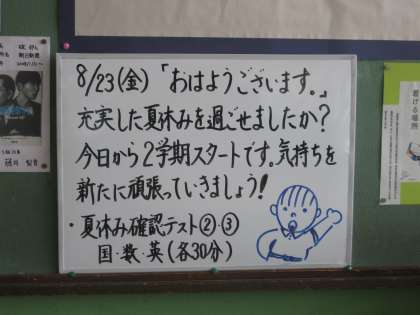 8/23(金)「おはようございます。」
充実した夏休みを過ごせましたか?
今日から2学期スタートです。気持ちを
新たに頑張っていきましょう!
・夏休み確認テスト②・③
国・数・英(各30分)
着ける場所